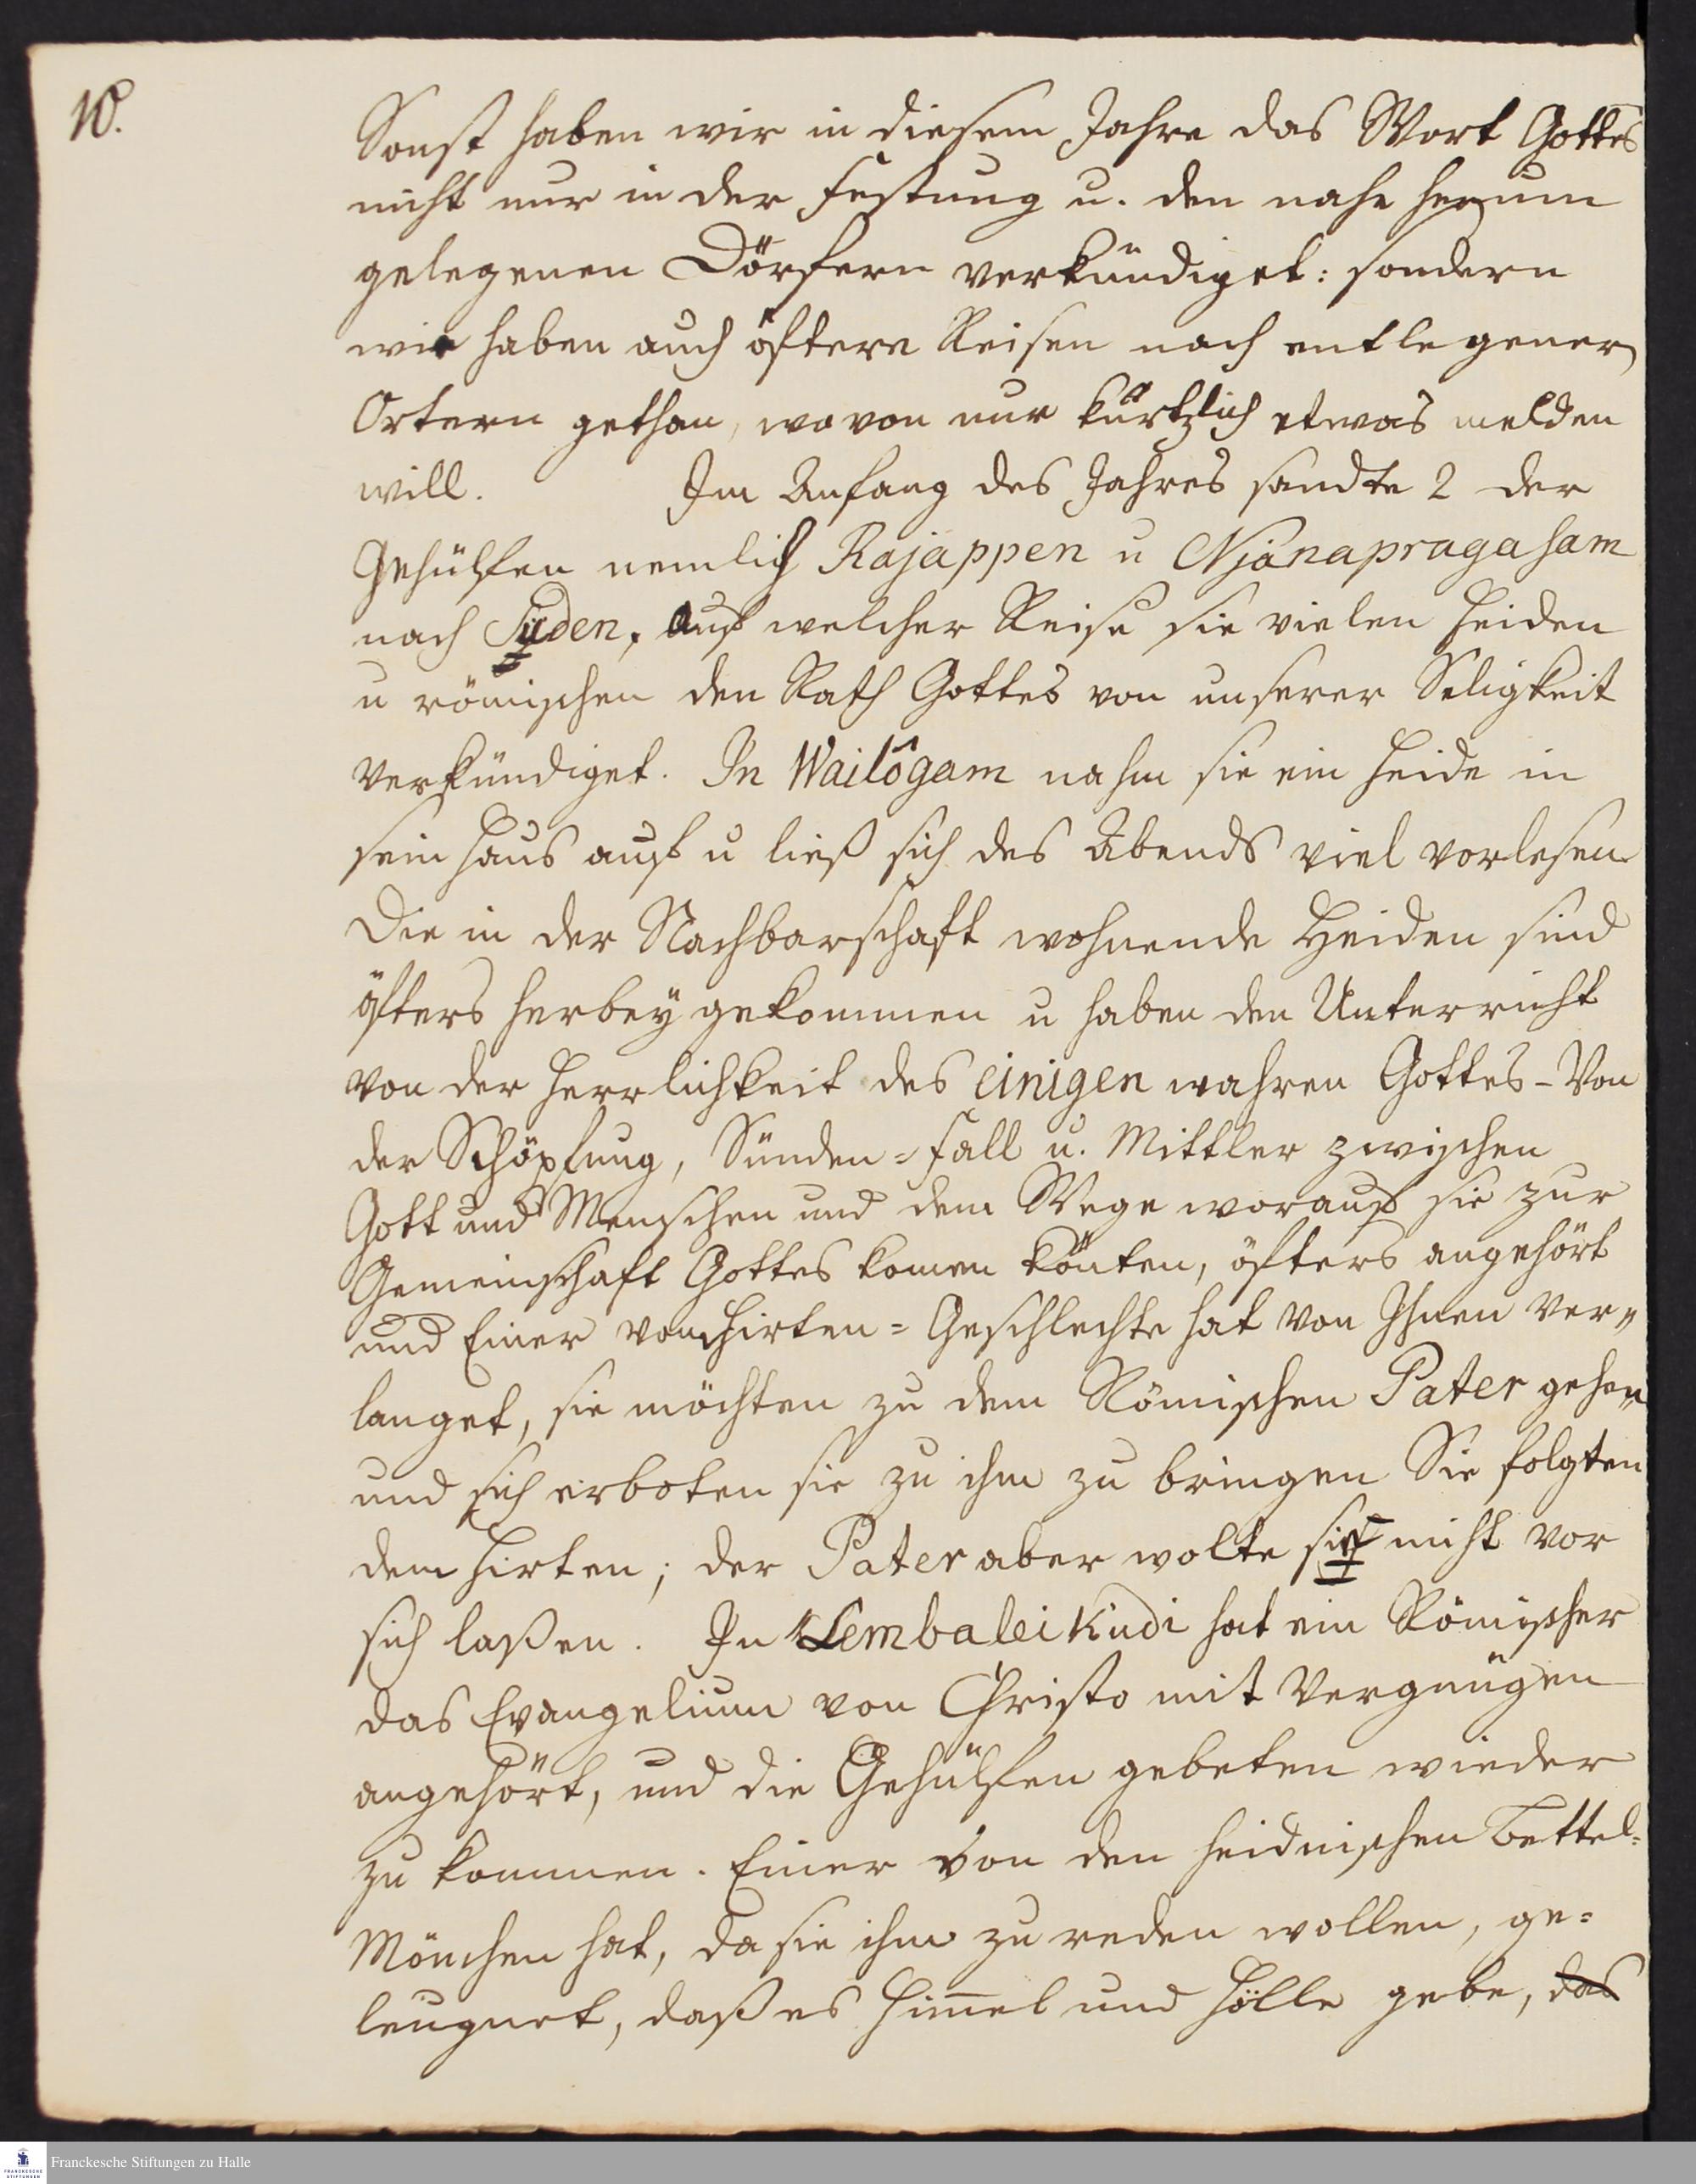 10.
Sonst haben wir in diesem Jahre das Wort Gottes
nicht nur in der Festung u. den nahe herum
gelegenen Dörfern verkündiget: sondern
wir haben auch öftere Reisen nach entlegenen
Ortern gethan, wovon nur kürtzlich etwas melden
will. Im Anfang des Jahres sandte 2 der
Gehülfen nemlich Rajappen u Njânapragasam
nach Süden, auf welcher Reise sie vielen Heiden
u römischen den Rath Gottes von unserer Seligkeit
verkündiget. In Wailôgam nahm sie ein Heide in
sein Haus auf u ließ sich des Abends viel vorlesen.
Die in der Nachbarschaft wohnende Heiden sind
öfters herbey gekommen u haben den Unterricht
von der Herrlichkeit des einigen wahren Gottes - Von
der Schöpfung, Sünden = Fall u. Mittler zwischen
Gott und Menschen und dem Wege worauf sie zur
Gemeinschaft Gottes komen könten, öfters angehört
und Einer vom Hirten = Geschlechte hat von Ihnen ver„
langet, sie möchten zu dem Römischen Pater gehen
und sich erboten sie zu ihm zu bringen Sie folgten
dem Hirten; der Pater aber wolte sie nicht vor
sich laßen. In Sembaleikudi hat ein Römischer
das Evangelium von Christo mit Vergnügen
angehört, und die Gehülfen gebeten wieder
zu kommen. Einer von den heidnischen Bettel-
Mönchen hat, da sie ihm zu reden wollen, ge=
leugnet, daß es Himmel und Hölle gebe, das
Franckesche Stiftungen zu Halle